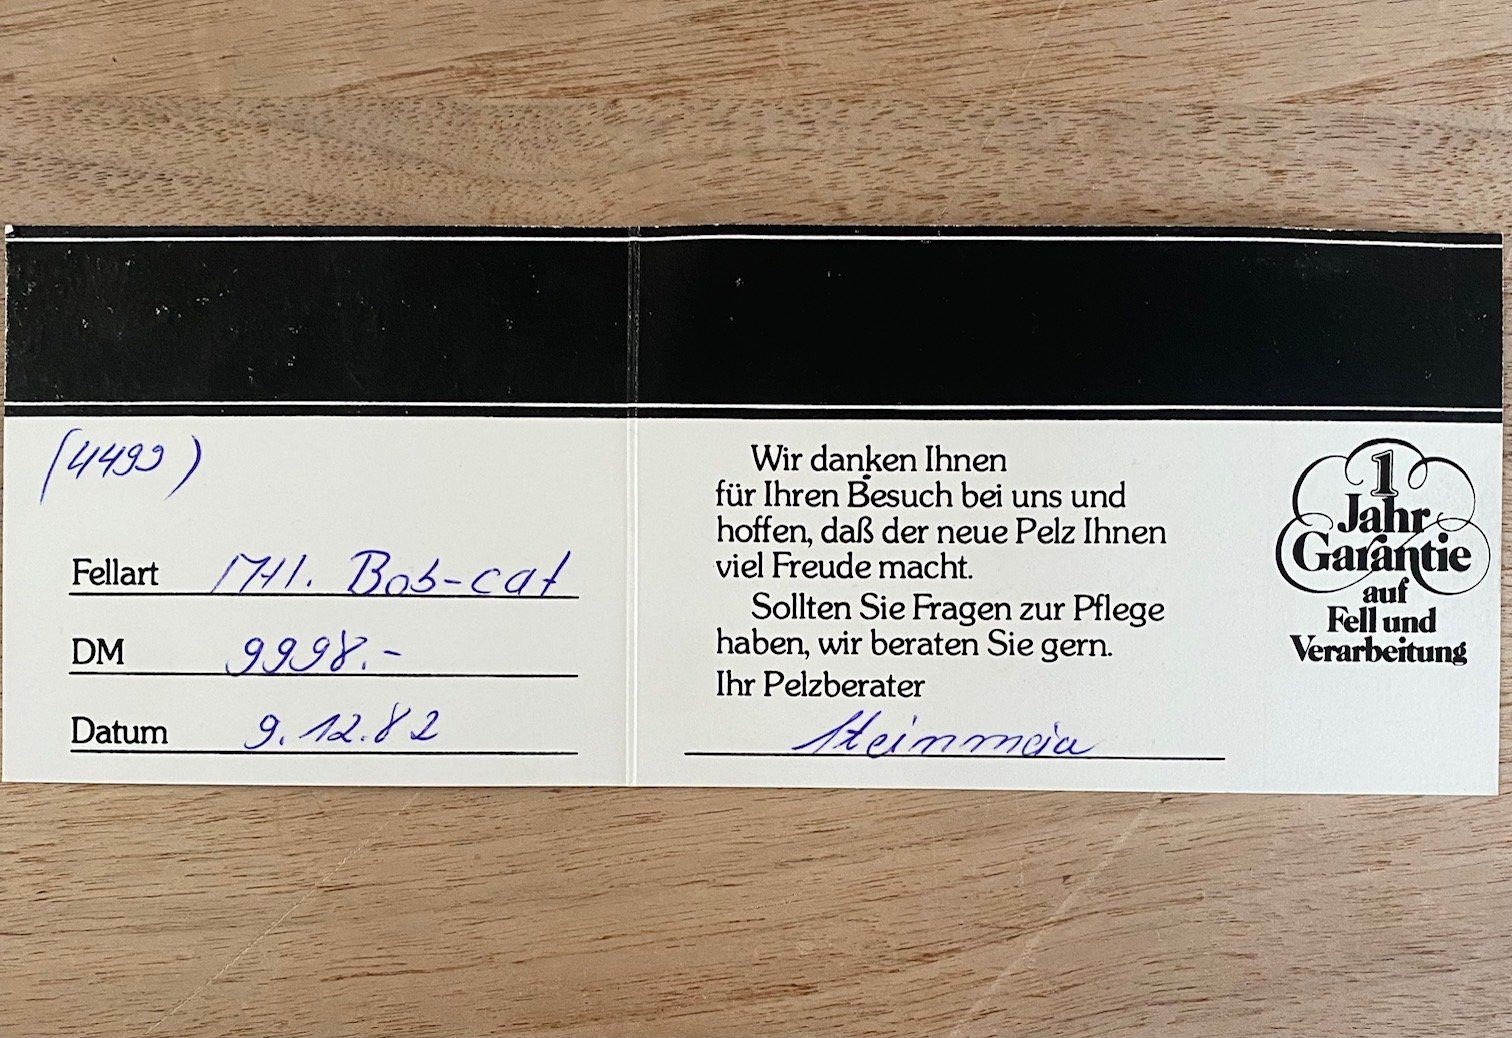 (4499)
Fellart Mtl. Bob-cat
DM 9998.-
Datum 9.12.82
Wir danken Ihnen
für Ihren Besuch bei uns und
hoffen, daß der neue Pelz Ihnen
viel Freude macht.
Sollten Sie Fragen zur Pflege
haben, wir beraten Sie gern.
Ihr Pelzberater
1
Jahr
Garantie
auf
Fell und
Verarbeitung